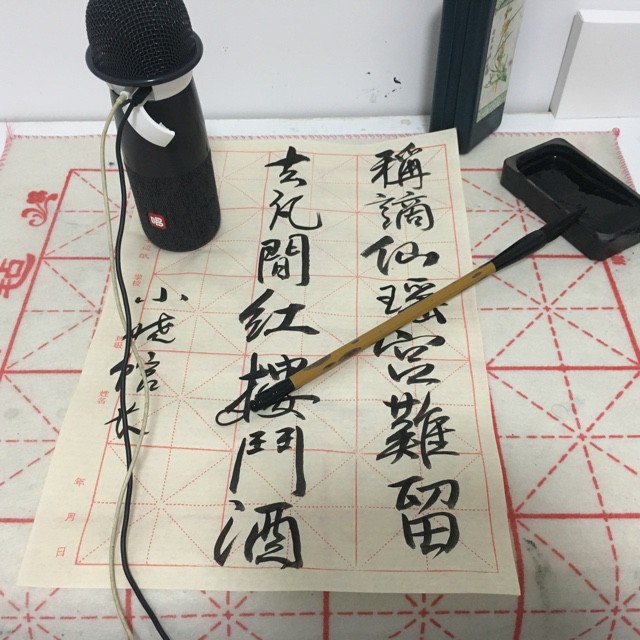 稱謫仙瑤宮難留
去凡間紅樓鬥酒
小曉
年
月
日